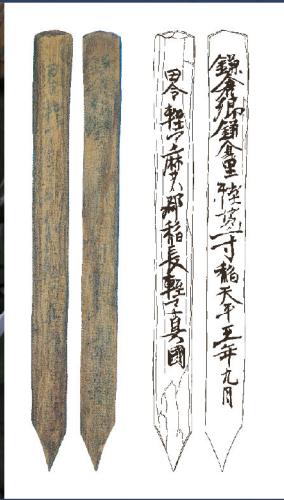 鎌倉郷鎌倉里軽マ寸稲天平五年九月
田令軽マ麻呂郡稲長軽マ真國